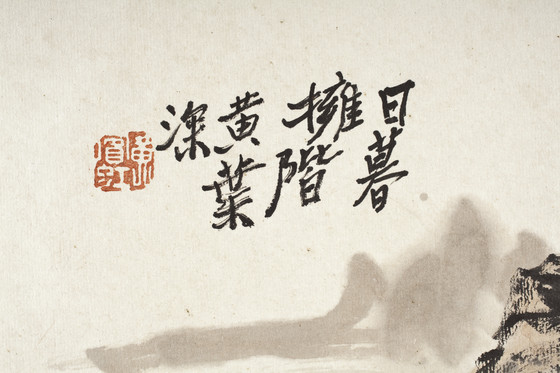 日暮
擁階
黃葉
深